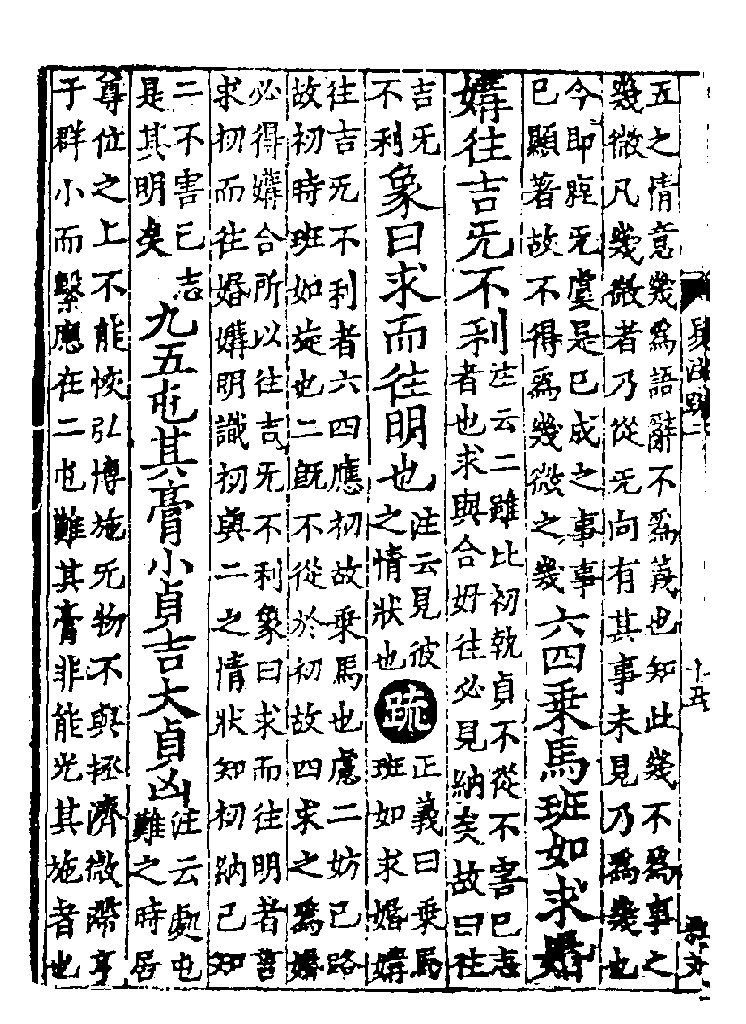 五之情意幾爲語辭不爲義也知此幾不爲事之
幾微凡幾微者乃從无向有其事未見乃爲幾也
今即鹿无虞是已成之事事
已顯著故不得爲幾微之幾
六四乘馬班如求婚
媾往吉无不利
注云二雖比初執貞不從不害己志
者也求與合好往必見納矣故曰往
吉无
不利
象曰求而往明也
注云見彼
之情狀也
疏
正義曰乘馬
班如求婚媾
往吉无不利者六四應初故乘馬也慮二妨己路
故初時班如旋也二既不從於初故四求之爲婚
必得媾合所以往吉无不利象曰求而往明者言
求初而往婚媾明識初與二之情狀知初納己知
二不害己志
是其明矣
九五屯其膏小貞吉大貞凶
注云處屯
難之時居
尊位之上不能恢弘博施无物不與拯濟微滯亨
于群小而繫應在二屯難其膏非能光其施者也